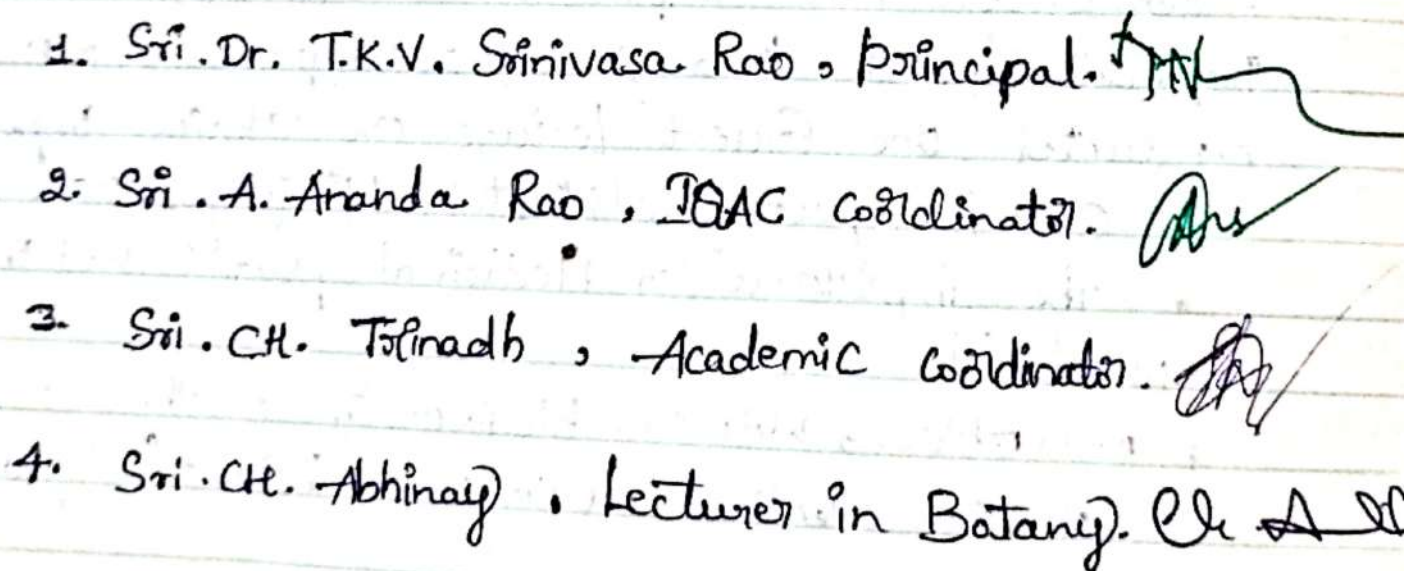 1. Sri. Dr. T.K.V. Srinivasa Rao, Principal.
2. Sri. A. Ananda Rao, IQAC Coordinator.
3. Sri. CH. Trinadh, Academic Coordinator.
4. Sri. CH. Abhinay, Lecturer in Botany.